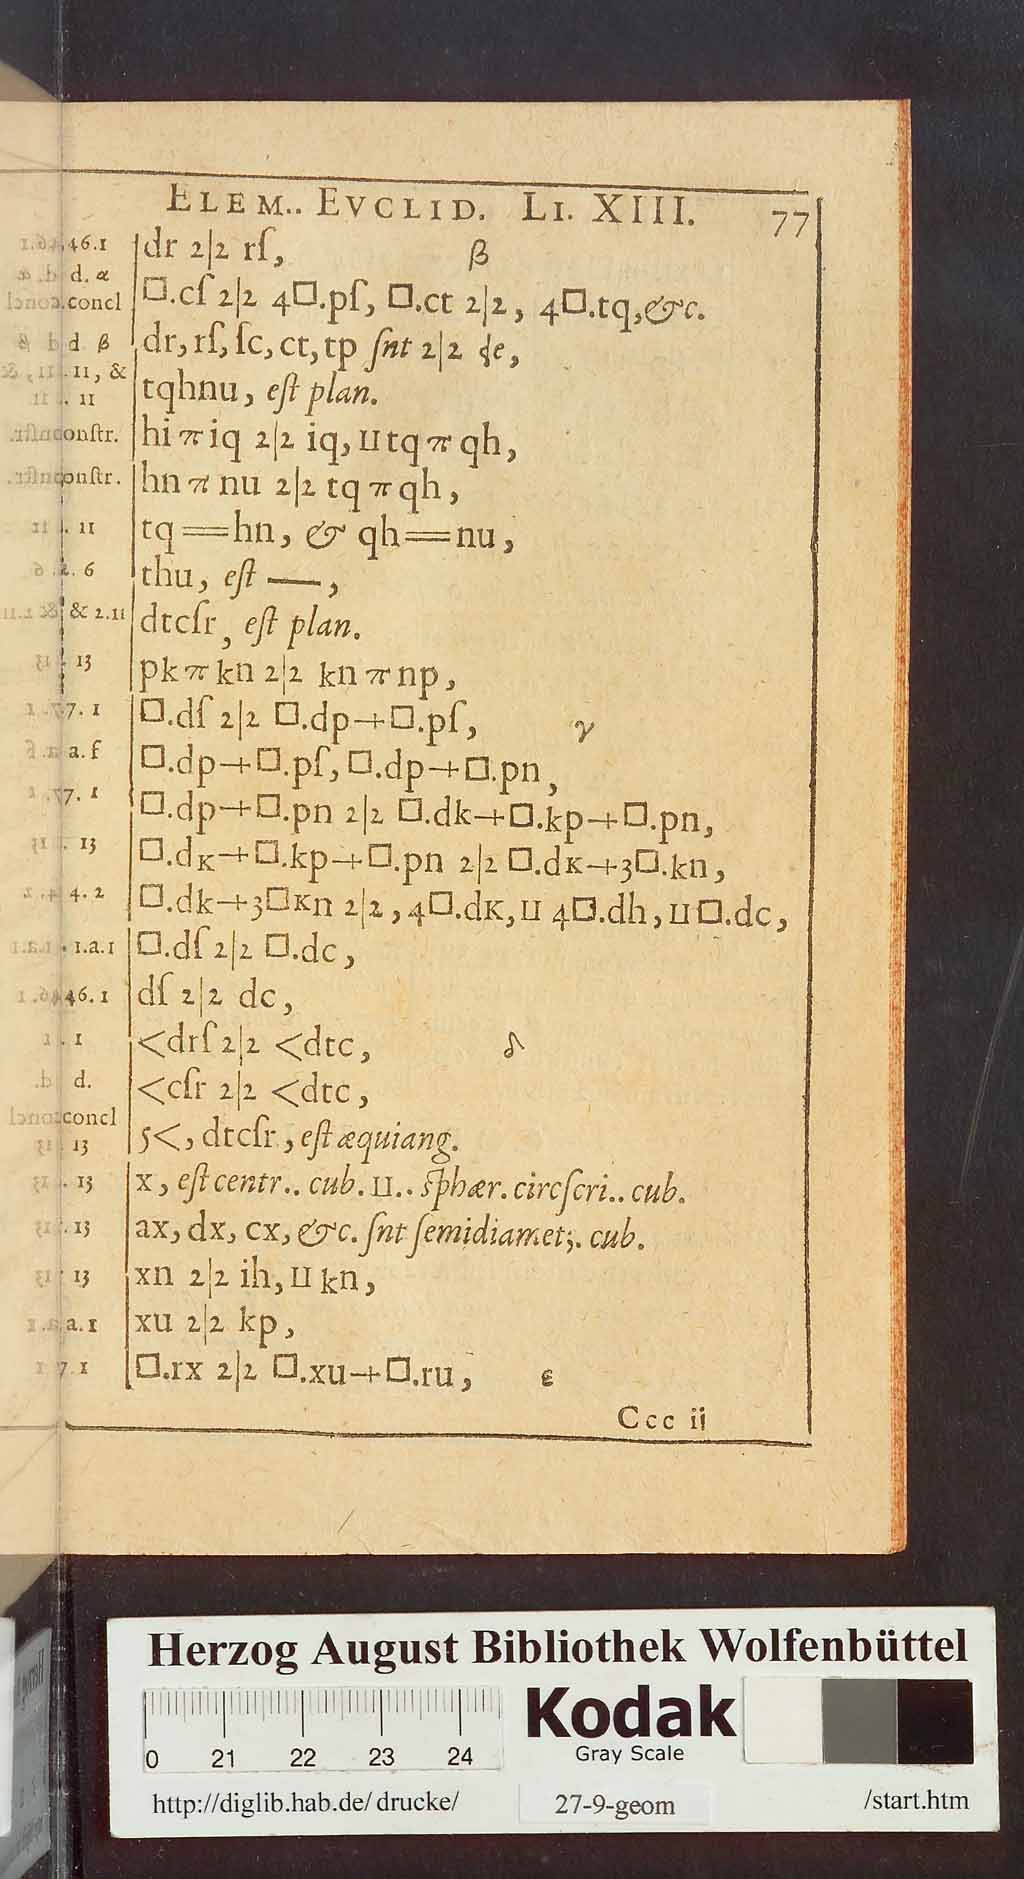 ELEM.. EVCLID. LI. XIII. 77
46.1 dr 2|2 rſ, β
d. α
concl □.cſ 2|2 4□.pſ, □.ct 2|2, 4□.tq, &c.
d. β dr, rſ, ſc, ct, tp ſnt 2|2
11, &
11 tqhnu, eſt plan.
onſtr. hi π iq 2|2 iq, ⊔ tq π qh,
onſtr. hn π nu 2|2 tq π qh,
. 11 tq==hn, & qh==nu,
. 6 thu, eſt —,
& 2.11 dtcſr, eſt plan.
13 pk π kn 2|2 kn π np,
7. 1 □.dſ 2|2 □.dp+□.pſ, γ
a. f □.dp+□.pſ, □.dp+□.pn,
7. 1 □.dp+□.pn 2|2 □.dk+□.kp+□.pn,
13 □.dĸ+□.kp+□.pn 2|2 □.dĸ+3□.kn,
4. 2 □.dk+3□ĸn 2|2, 4□.dĸ, ⊔ 4□.dh, ⊔□.dc,
1.a.1 □.dſ 2|2 □.dc,
46. 1 dſ 2|2 dc,
. 1 <drſ 2|2 <dtc, δ
d. <cſr 2|2 <dtc,
concl
13 5<, dtcſr, eſt æquiang.
. 13 x, eſt centr.. cub. ⊔.. ſphær. circſcri.. cub.
. 13 ax, dx, cx, &c. ſnt ſemidiamet;. cub.
13 xn 2|2 ih, ⊔ kn,
a. 1 xu 2|2 kp,
7. 1 □.rx 2|2 □.xu+□.ru, ε
Ccc ij
Herzog August Bibliothek Wolfenbüttel
0 21 22 23 24
Kodak
Gray Scale
http://diglib.hab.de/drucke/ 27-9-geom /start.htm